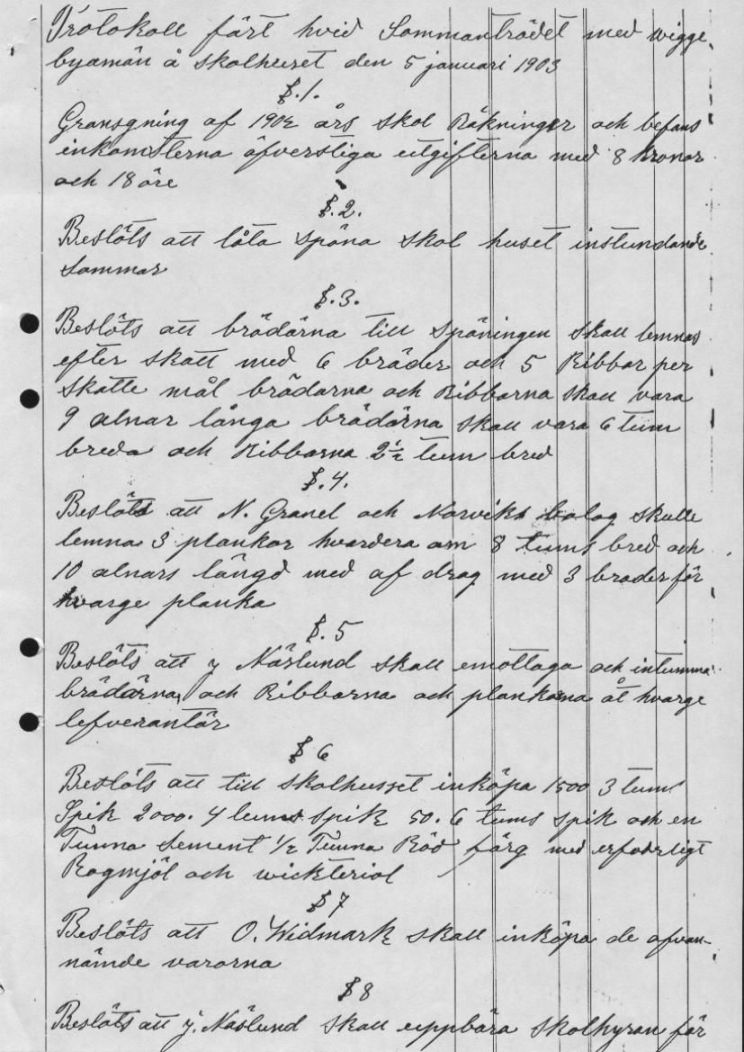 Protokoll fört hvid Sommanträdet med wigge
byamän å skolhuset den 5 januari 1903
§.1.
Gransgning af 1902 års skol Räkninger och befans
inkomsterna öfverstiga utgifterna med 8 kronor
och 18 öre
§.2.
Beslöts att låta spåna skol huset instundande
Sommar
§.3.
Beslöts att brädärna till Spåningen skall lemnas
efter skatt med 6 bräder och 5 Ribbor per
skatte mål brädarna och Ribborna skall vara
9 alnar långa brädärna skall vara 6 tum
breda och Ribborna 2½ tum bred
§.4.
Beslöts att N. Granel och Norviks bolag skulle
lemna 3 plankor hvardera om 8 tums bred och
10 alnars längd med af drag med 3 brader för
hvarge planka
§.5
Beslöts att j Näslund skall emottaga och intumma
brädärna och Ribborna och plankorna åt hvarge
lefverantör
§ 6
Beslöts att till skolhusset inköpa 1500 3 tums
Spik 2000. 4 tums spik 50. 6 tums spik och en
Tunna Sement 1/2 Tunna Röd färg med erfoderligt
Rogmjöl och wickteriol
§ 7
Beslöts att O. Widmark skall inköpa de ofvan-
nämde varorna
§ 8
Beslöts att j. Näslund skall uppbära skolhyran för